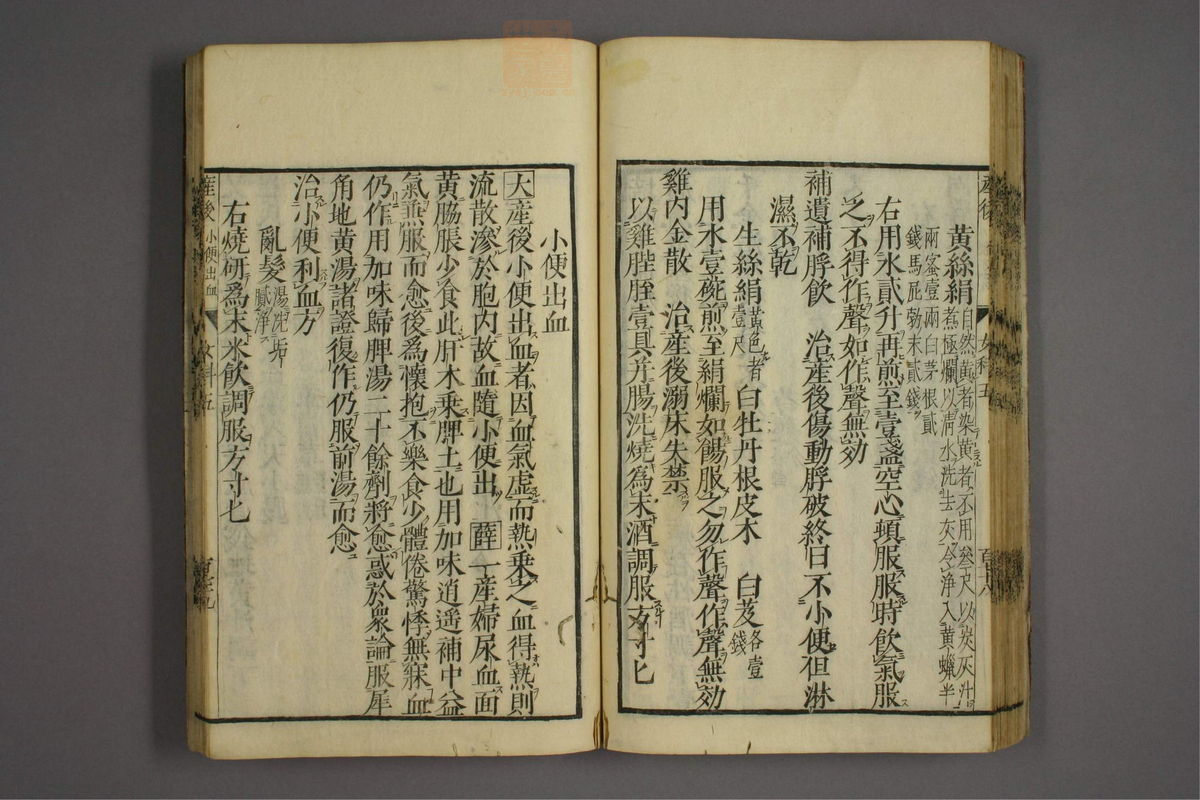 黃絲絹自然黃者染黃者不用叄尺以炭灰汁
煮極爛以清水洗去灰令淨入黃蠟半
兩蜜壹兩白茅根貳
錢馬屁勃末貳錢
右用水貳升再煎至壹盞空心頓服服時飲氣服
之不得作聲如作聲無効
補遺補脬飲　治產後傷動脬破終日不小便但淋
濕不乾
生絲絹黃色者壹尺　白牡丹根皮木　白芨各壹錢
用水壹碗煎至絹爛如餳服之勿作聲作聲無効
雞內金散　治產後溺床失禁
以雞䏶胵壹具并腸洗燒為末酒調服方寸匕
小便出血
大產後小便出血者因血氣虛而熱乘之血得熱則
流散滲於胞內故血隨小便出　薛一產婦尿血面
黃脇脹少食此肝木乘脾土也用加味逍遥補中益
氣兼服而愈後為懷抱不樂食少體倦驚悸無寐血
仍作用加味歸脾湯二十餘劑將愈惑於衆論服犀
角地黃湯諸證復作仍服前湯而愈
治小便利血方
亂髮湯洗垢膩淨
右燒研為末米飲調服方寸匕
產後　小便出血　女科五